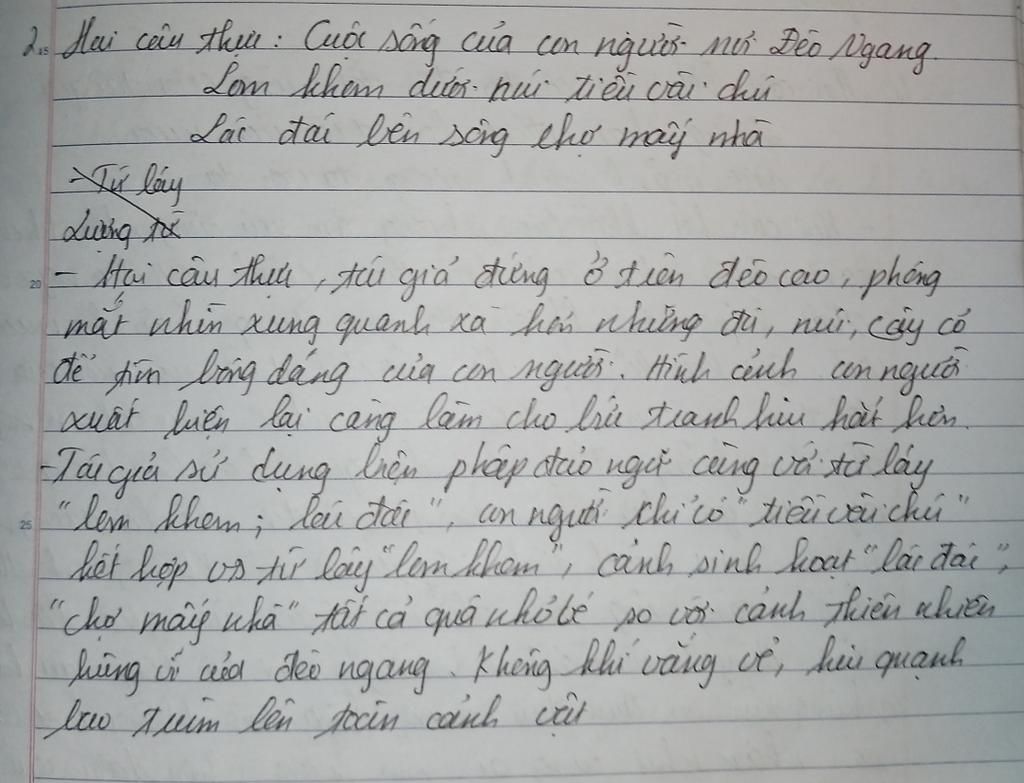 2. Hai câu thực: Cuộc sống của con người nơi Đèo Ngang.
Lom khom dưới núi tiều vài chú
Lác đác bên sông chợ mấy nhà
- Từ láy
Lượng từ
- Hai câu thực, tác giả đứng ở trên đèo cao, phóng
mắt nhìn xung quanh xa hơn những đồi, núi, cây cỏ
để tìm bóng dáng của con người. Hình ảnh con người
xuất hiện lại càng làm cho bức tranh hiu hắt hơn.
- Tác giả sử dụng biện pháp đảo ngữ cùng với từ láy
"lom khom; lác đác", con người chỉ có "tiều vài chú"
kết hợp vs từ láy "lom khom", cảnh sinh hoạt "lác đác",
"chợ mấy nhà" tất cả quá nhỏ bé so với cảnh thiên nhiên
hùng vĩ của đèo ngang. Không khí vắng vẻ, hiu quạnh
bao trùm lên toàn cảnh vật